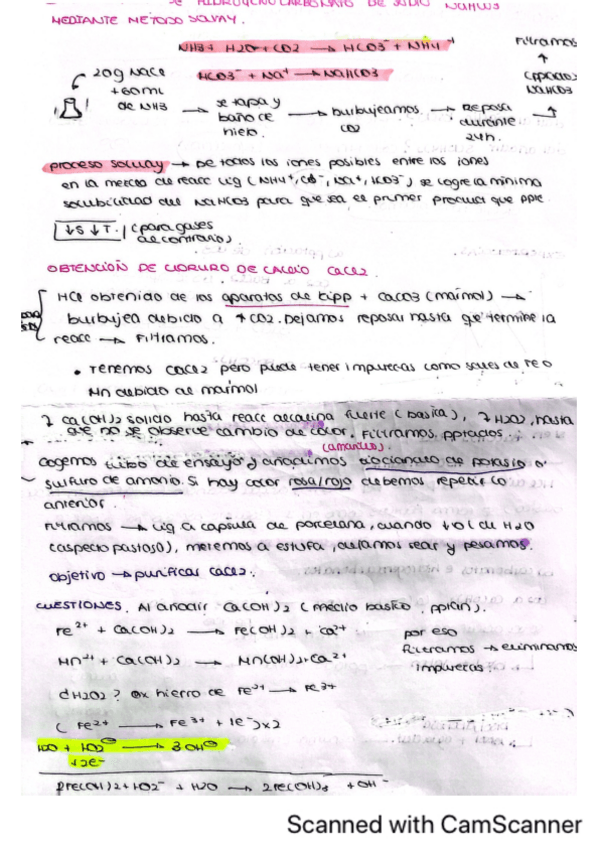 DE HIDROGENOCARBONATO DE SODIO NaHCO3
MEDIANTE METODO SOLVAY.
NH3 + H2O + CO2 → HCO3⁻ + NH4⁺
HCO3⁻ + Na⁺ → NaHCO3
20g NaCl
+60ml
de NH3
→ se tapa y
baño de
hielo.
→ burbujeamos
CO2
→ Reposa
durante
24h.
Filtramos
↑
NaHCO3
proceso solvay → De todos los iones posibles entre los iones
en la mezcla de reacc liq (NH4⁺, Cl⁻, Na⁺, HCO3⁻) se logra la mínima
solubilidad del NaHCO3 para que sea el primer producto que ppte
↓S ↓T. (para gases
al contrario).
OBTENCIÓN DE CLORURO DE CALCIO CaCl2.
HCl obtenido de los aparatos de kipp + CaCO3 (mármol) →
burbujea debido a ↑CO2. Dejamos reposar hasta que termine la
reacc → Filtramos.
• Tenemos CaCl2 pero puede tener impurezas como sales de Fe o
Mn debido al mármol
Ca(OH)2 solido hasta reacc alcalina fuerte (basica), H2O2, hasta
que no se observe cambio de color. Filtramos, pptados.
(amarillo)
cogemos tubo de ensayo y añadimos tiocianato de potasio o
sulfuro de amonio. Si hay color rosa/rojo debemos repetir lo
anterior.
Filtramos → liq a capsula de porcelana, cuando ↓ vol de H2O
(aspecto pastoso), metemos a estufa, dejamos secar y pesamos.
objetivo → purificar CaCl2.
CUESTIONES. Al añadir Ca(OH)2 (medio basico, pptan).
Fe²⁺ + Ca(OH)2 → Fe(OH)2 + Ca²⁺
por eso
filtramos → eliminamos
impurezas.
Mn²⁺ + Ca(OH)2 → Mn(OH)2 + Ca²⁺
¿H2O2? Ox hierro de Fe²⁺ → Fe³⁺
(Fe²⁺ → Fe³⁺ + 1e⁻)x2
H2O + HO2⁻ → 3OH⁻
+2e⁻
2Fe(OH)2 + HO2⁻ + H2O → 2Fe(OH)3 + OH⁻
Scanned with CamScanner